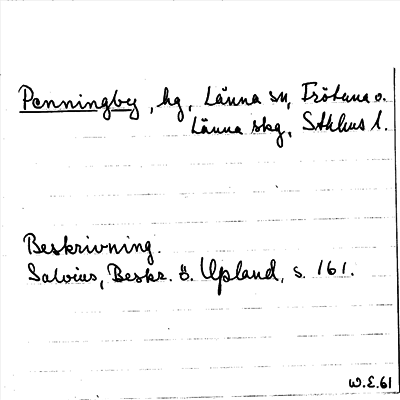 Penningby, hg, Länna sn, Frötuna o.
Länna skg, Sthlms l.
Beskrivning.
Salvius, Beskr. ö. Upland, s. 161.
W.E.61